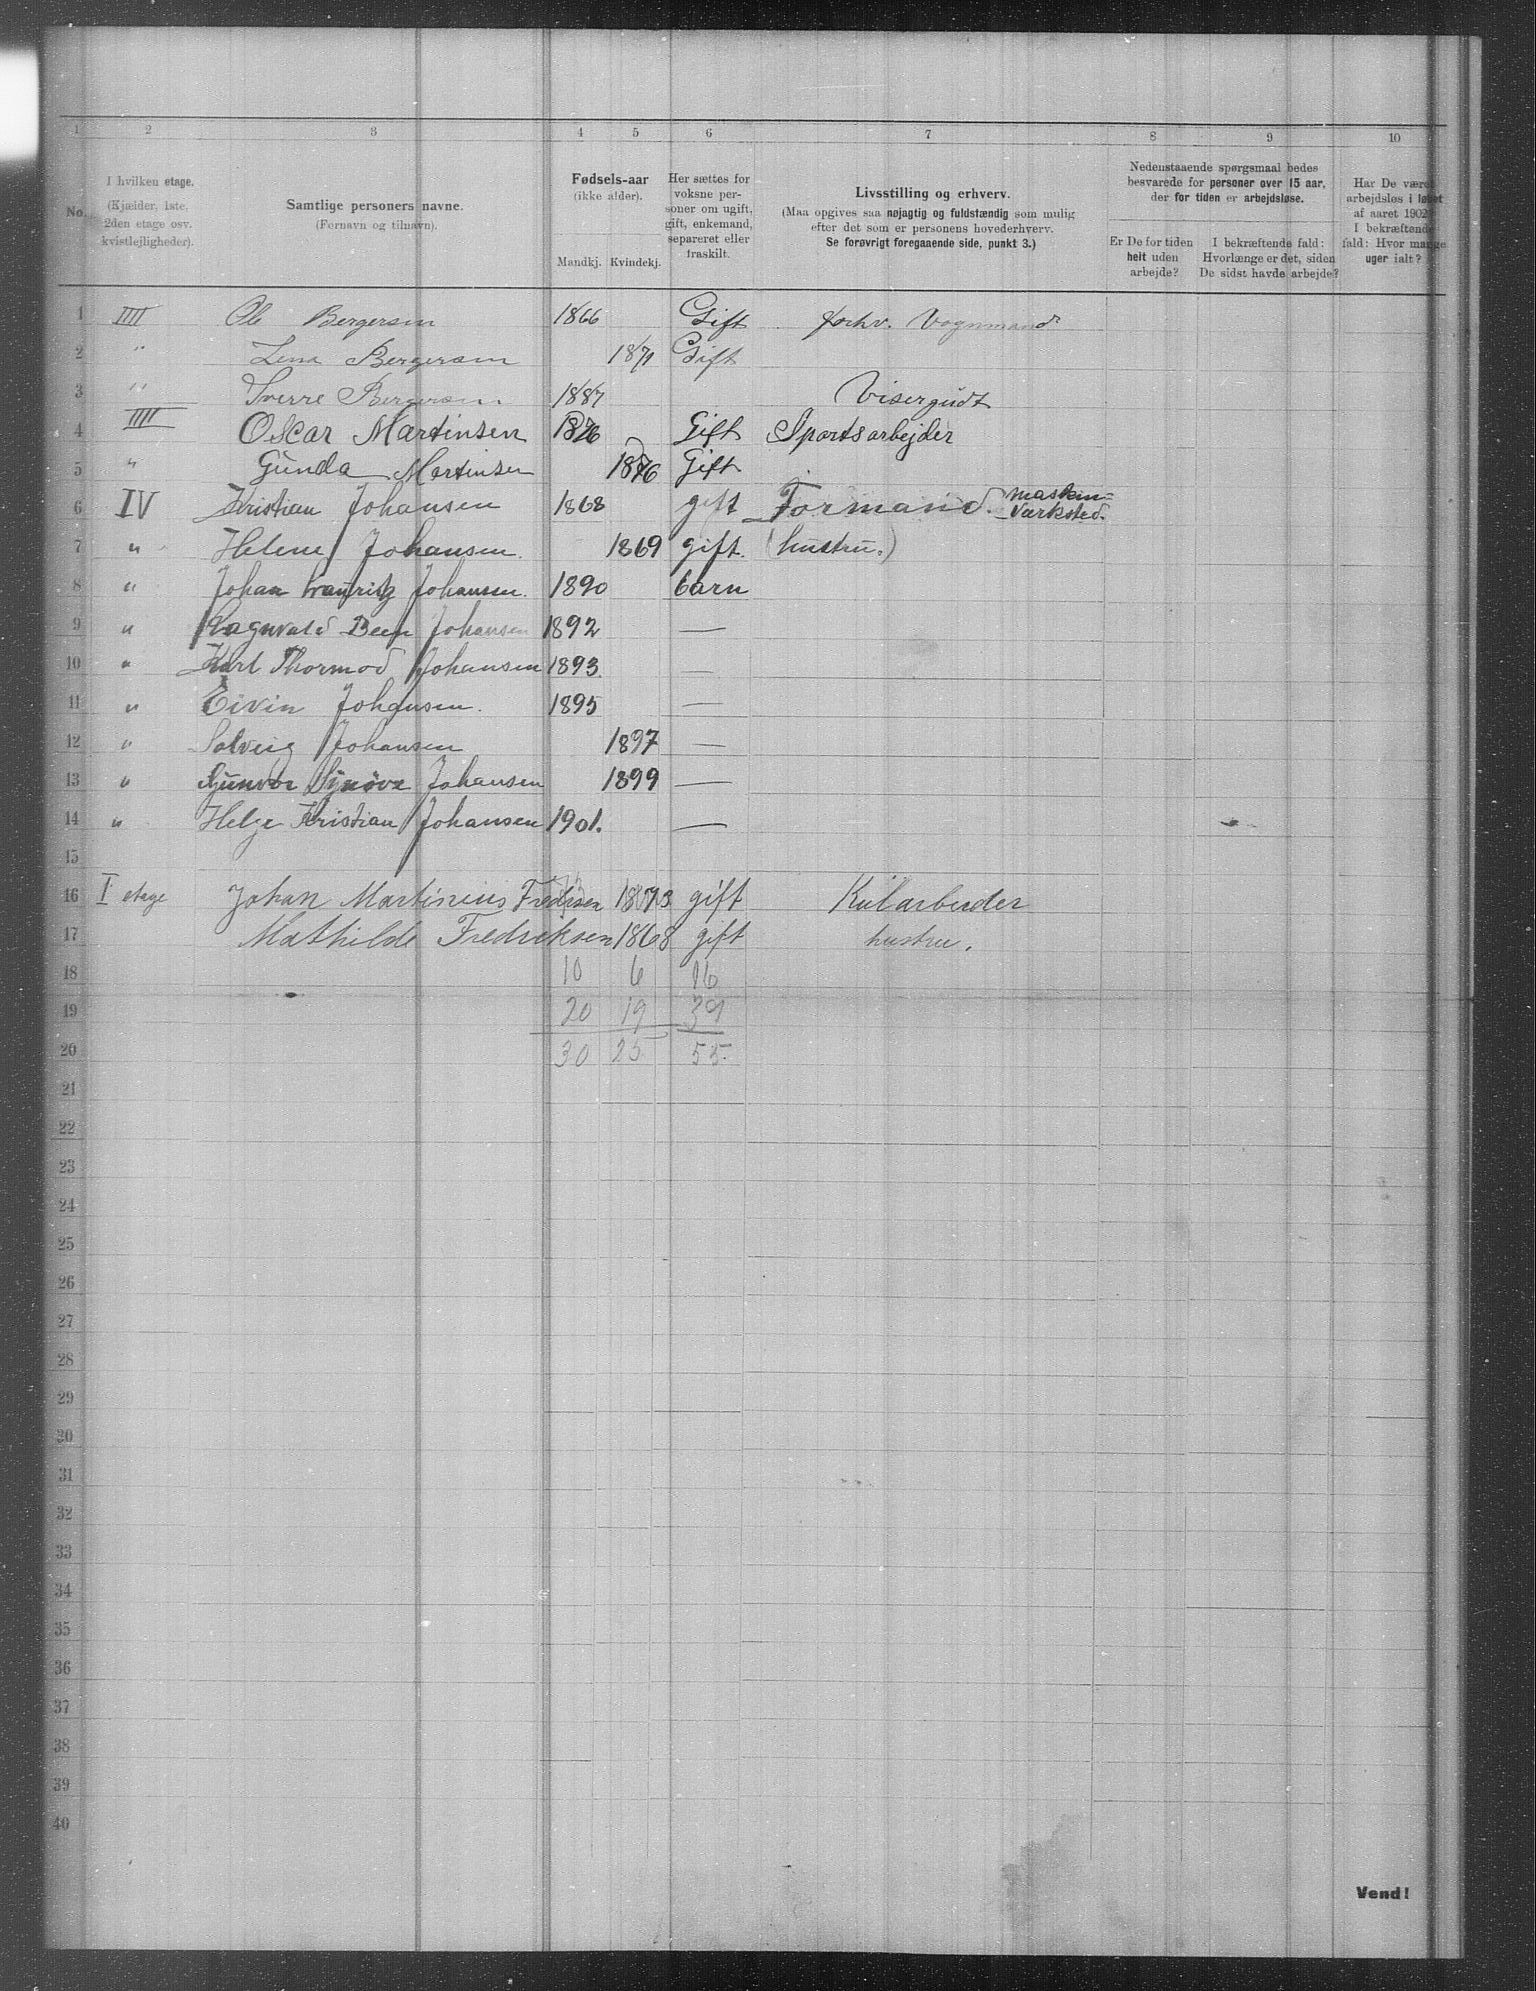 1 2 3 4 5 6 7 8 9 10
No. I hvilken etage. (Kjælder, 1ste, 2den etage osv. kvistlejligheder). Samtlige personers navne. (Fornavn og tilnavn). Fødsels-aar (ikke alder). Mandkj. Kvindekj. Her sættes for voksne personer om ugift, gift, enkemand, separeret eller fraskilt. Livsstilling og erhverv. (Maa opgives saa nøjagtig og fuldstændig som mulig efter det som er personens hovederhverv. Se forøvrigt foregaaende side, punkt 3.) Nedenstaaende spørgsmaal bedes besvarede for personer over 15 aar, der for tiden er arbejdsløse. Er De for tiden helt uden arbejde? I bekræftende fald: Hvorlænge er det, siden De sidst havde arbejde? Har De været arbejdsløs i løbet af aaret 1902? I bekræftende fald: Hvor mange uger ialt?
1 IIII Ole Bergersen 1866 Gift forhv. Vognmand
2 " Lina Bergersen 1871 Gift
3 " Sverre Bergersen 1887 Visergudt
4 IIII Oscar Martinsen 1876 Gift Sportsarbejder
5 " Gunda Martinsen 1876 Gift
6 IV Kristian Johansen 1868 gift Formand. maskin-Værksted.
7 " Helene Johansen. 1869 gift. (hustru.)
8 " Johan Lauritz Johansen. 1890 barn
9 " Ragnvald Been Johansen 1892 —
10 " Karl Thormod Johansen 1893. —
11 " Eivin Johansen. 1895 —
12 " Solveig Johansen 1897 —
13 " Gunvor Synøve Johansen 1899 —
14 " Helge Kristian Johansen 1901. —
15
16 I etage Johan Martinius Fredrsen 1873 gift Kularbeider
17 Mathilde Fredreksen 1868 gift hustru.
18 10 6 16
19 20 19 39
20 30 25 55.
21
22
23
24
25
26
27
28
29
30
31
32
33
34
35
36
37
38
39
40
Vend!